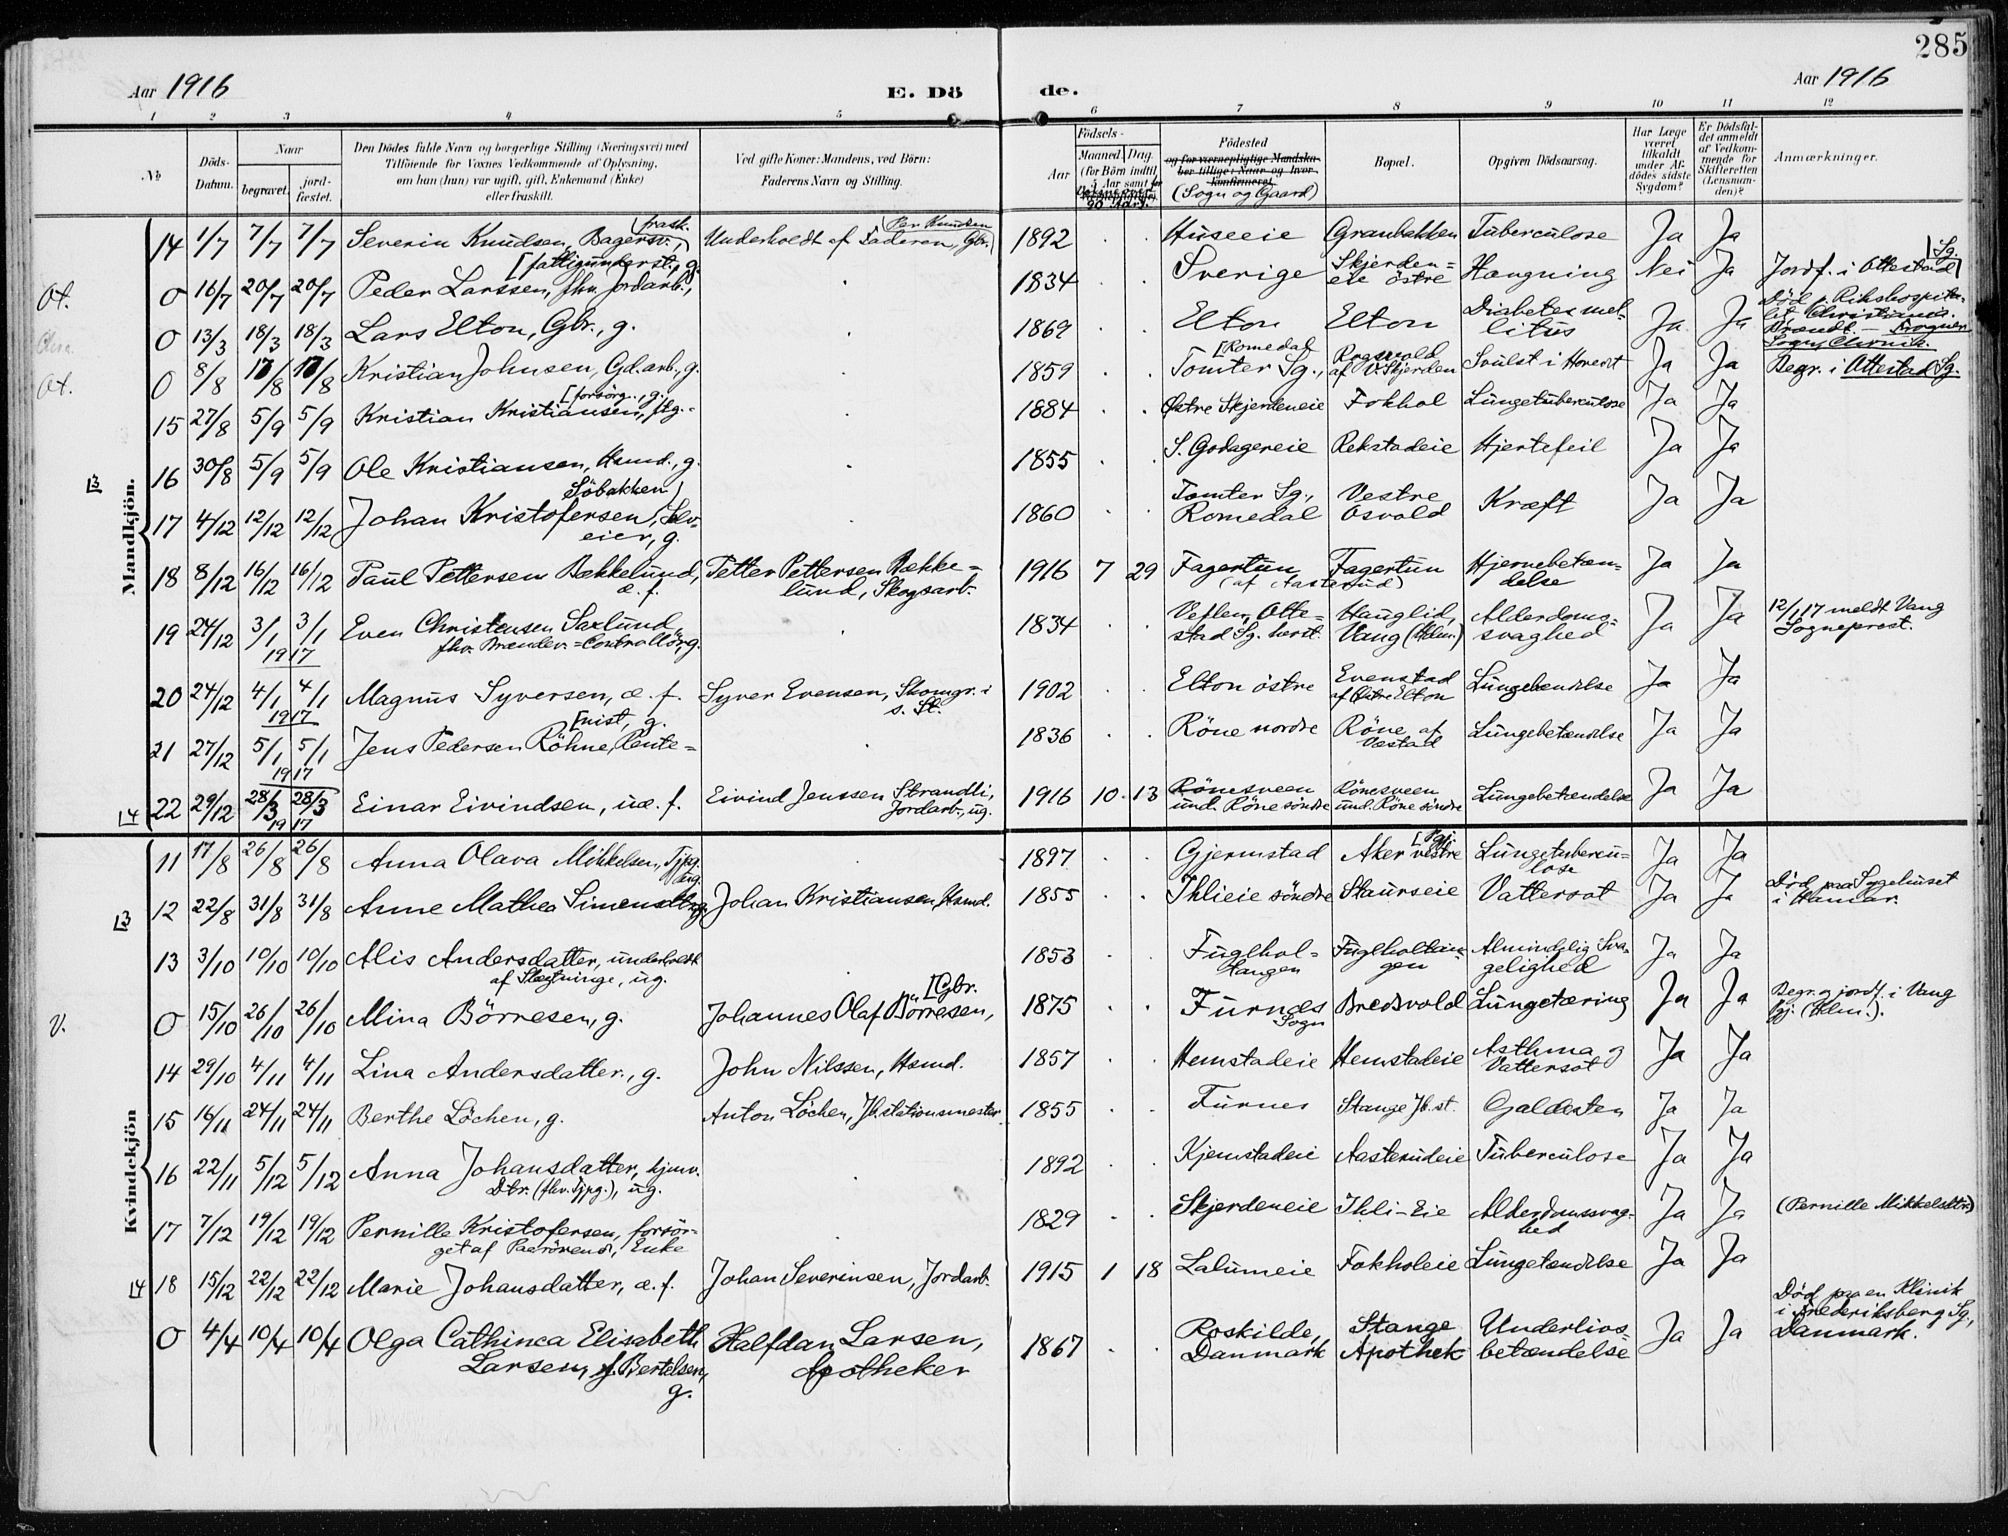 285
Aar 1916
E. Dö de.
Aar 1916
1 2 3 4 5 6 7 8 9 10 11 12
№
Döds-Datum.
Naar
begravet.
jord-fæstet.
Den Dödes fulde Navn og borgerlige Stilling (Næringsvei) med
Tilföiende for Voxnes Vedkommende af Oplysning,
om han (hun) var ugift, gift, Enkemand (Enke)
eller fraskilt.
Ved gifte Koner: Mandens, ved Börn:
Faderens Navn og Stilling.
Födsels-
Aar
Maaned. Dag.
(for Börn indtil
Födested
og for værnepligtige Mandska-
ber tillige: Naar og hvor
konfirmeret.
(Sogn og Gaard)
Bopæl.
Opgiven Dödsaarsag.
Har Læge været tilkaldt under Af-dödes sidste Sygdom?
Er Dödsfal-det anmeldt af Vedkom-mende for Skifteretten (Lensman-den)?
Anmærkninger.
Mandkjön.
14 1/7 7/7 7/7 Severin Knudsen, Bagersv., frask. Underholdt af Faderen, Per Knudsen Gbr. 1892 Huseeie Granbakken Tuberculose Ja Ja
Ot. 0 16/7 20/7 20/7 Peder Larssen, fhv. Jordarb., [fattigunderst., g. 1834 Sverige Skjerden=eie östre Hængning Nei Ja Jordf. i Ottestad Sg.
0 13/3 18/3 18/3 Lars Elton, Gbr., g. 1869 Elton Elton Diabetes mel-litus Ja Ja Död p. Rikshospita-let Christiania. Brændt. -
Ot. 0 8/8 /8 /8 Kristian Johnsen, Gd.arb., g. 1859 [Romedal Tomter Sg., Rogsvold af V. Skjerden Svulst i Hovedet Ja Ja Begr. i Ottestad Sg.
15 27/8 5/9 5/9 Kristian Kristiansen, ftg.= [forsörg., g. 1884 Östre Skjerdeneie Fokhol Lungetuberculose Ja Ja
16 30/8 5/9 5/9 Ole Kristiansen, Hsmd., g. 1855 S. Godagereie Rekstadeie Hjertefeil Ja Ja
17 4/12 12/12 12/12 Johan Kristofersen, Selv-eier, g. Söbakken) 1860 Tomter Sg., Romedal Vestre Osvold Kræft Ja Ja
18 8/12 16/12 16/12 Paul Pettersen Bækkelund, æ. f. Petter Pettersen Bække=lund, Skogsarb. 1916 7 29 Fagertun Fagertun (af Aasterud) Hjernebetæn-delse Ja Ja
19 24/12 3/1 3/1 1917 Even Christensen Saxlund fhv. Brændev.=Controllör, g. 1834 Veflen, Otte=stad Sg. herst. Hauglid, Vang (Hdm.) Alderdoms-svaghed Ja Ja 12/1 17 meldt Vang Sogneprest.
20 24/12 4/1 4/1 1917 Magnus Syversen, æ. f. Syver Evensen, Skomgr. i s. St. 1902 Elton östre Evenstad af Östre Elton Ja Ja
21 27/12 5/1 5/1 1917 Jens Pedersen Röhne, Rente= [nist, g. 1836 Röne nordre Röne af Væstad Lungebetændelse Ja Ja
22 29/12 28/3 28/3 1917 Einar Eivindsen, uæ. f. Eivind Jenssen Strandli, Jordarb., ug. 1916 10 13 Rönesveen und. Röne söndre Rönesveen und. Röne söndre Lungebetændelse Ja Ja
Kvindekjön
11 17/8 26/8 26/8 Anna Olava Mikkelsen, Tjpg. ug. 1897 Gjermstad Aker vestre Lungetubercu=lose Ja Ja
12 22/8 31/8 31/8 Anne Mathea Simensdtr, g. Johan Kristiansen, Hsmd. 1855 Ihlieie söndre Staurseie Vattersot Ja Ja Död paa Sygehuset i Hamar.
13 3/10 10/10 10/10 Alis Andersdatter, underholdt af Slægtninge, ug. 1853 Fuglhol=tangen Fuglholtan-gen Almindelig Sva-gelighed Ja Ja
V. 0 15/10 26/10 26/10 Mina Börresen, g. Johannes Olaf Börresen, [Gbr. 1875 Furnes Sogn Bredsvold Lungetæring Ja Ja Begr. og jordf. i Vang (Hdm.).
14 29/10 4/11 4/11 Lina Andersdatter, g. John Nilssen, Hsmd. 1857 Hemstadeie Hemstadeie Asthma og Vattersot Ja Ja
15 16/11 24/11 24/11 Berthe Löchen, g. Anton Löchen, Jb.stationsmester 1855 Furnes Stange Jb. st. Galdesten Ja Ja
16 22/11 5/12 5/12 Anna Johansdatter, hjmv. Dtr. (fhv. Tjpg.), ug. 1892 Kjemstadeie Aasterudeie Tuberculose Ja Ja
17 7/12 19/12 19/12 Pernille Kristofersen, forsör-get af Paarörende, Enke 1829 Skjerdeneie Ihli-Eie Alderdomssvag-hed Ja Ja (Pernille Mikkelsdtr.)
18 15/12 22/12 22/12 Marie Johansdatter, æ. f. Johan Severinsen, Jordarb. 1915 1 18 Lalumeie Fokholeie Lungetændelse Ja Ja
0 4/4 10/4 10/4 Olga Cathinca Elisabeth Larsen, f. Bertelsen, g. Halfdan Larsen, Apotheker 1867 Roskilde, Danmark Stange Apothek Underlivs-betændelse Ja Ja Död paa en Klinik i Frederiksberg Sg., Danmark.